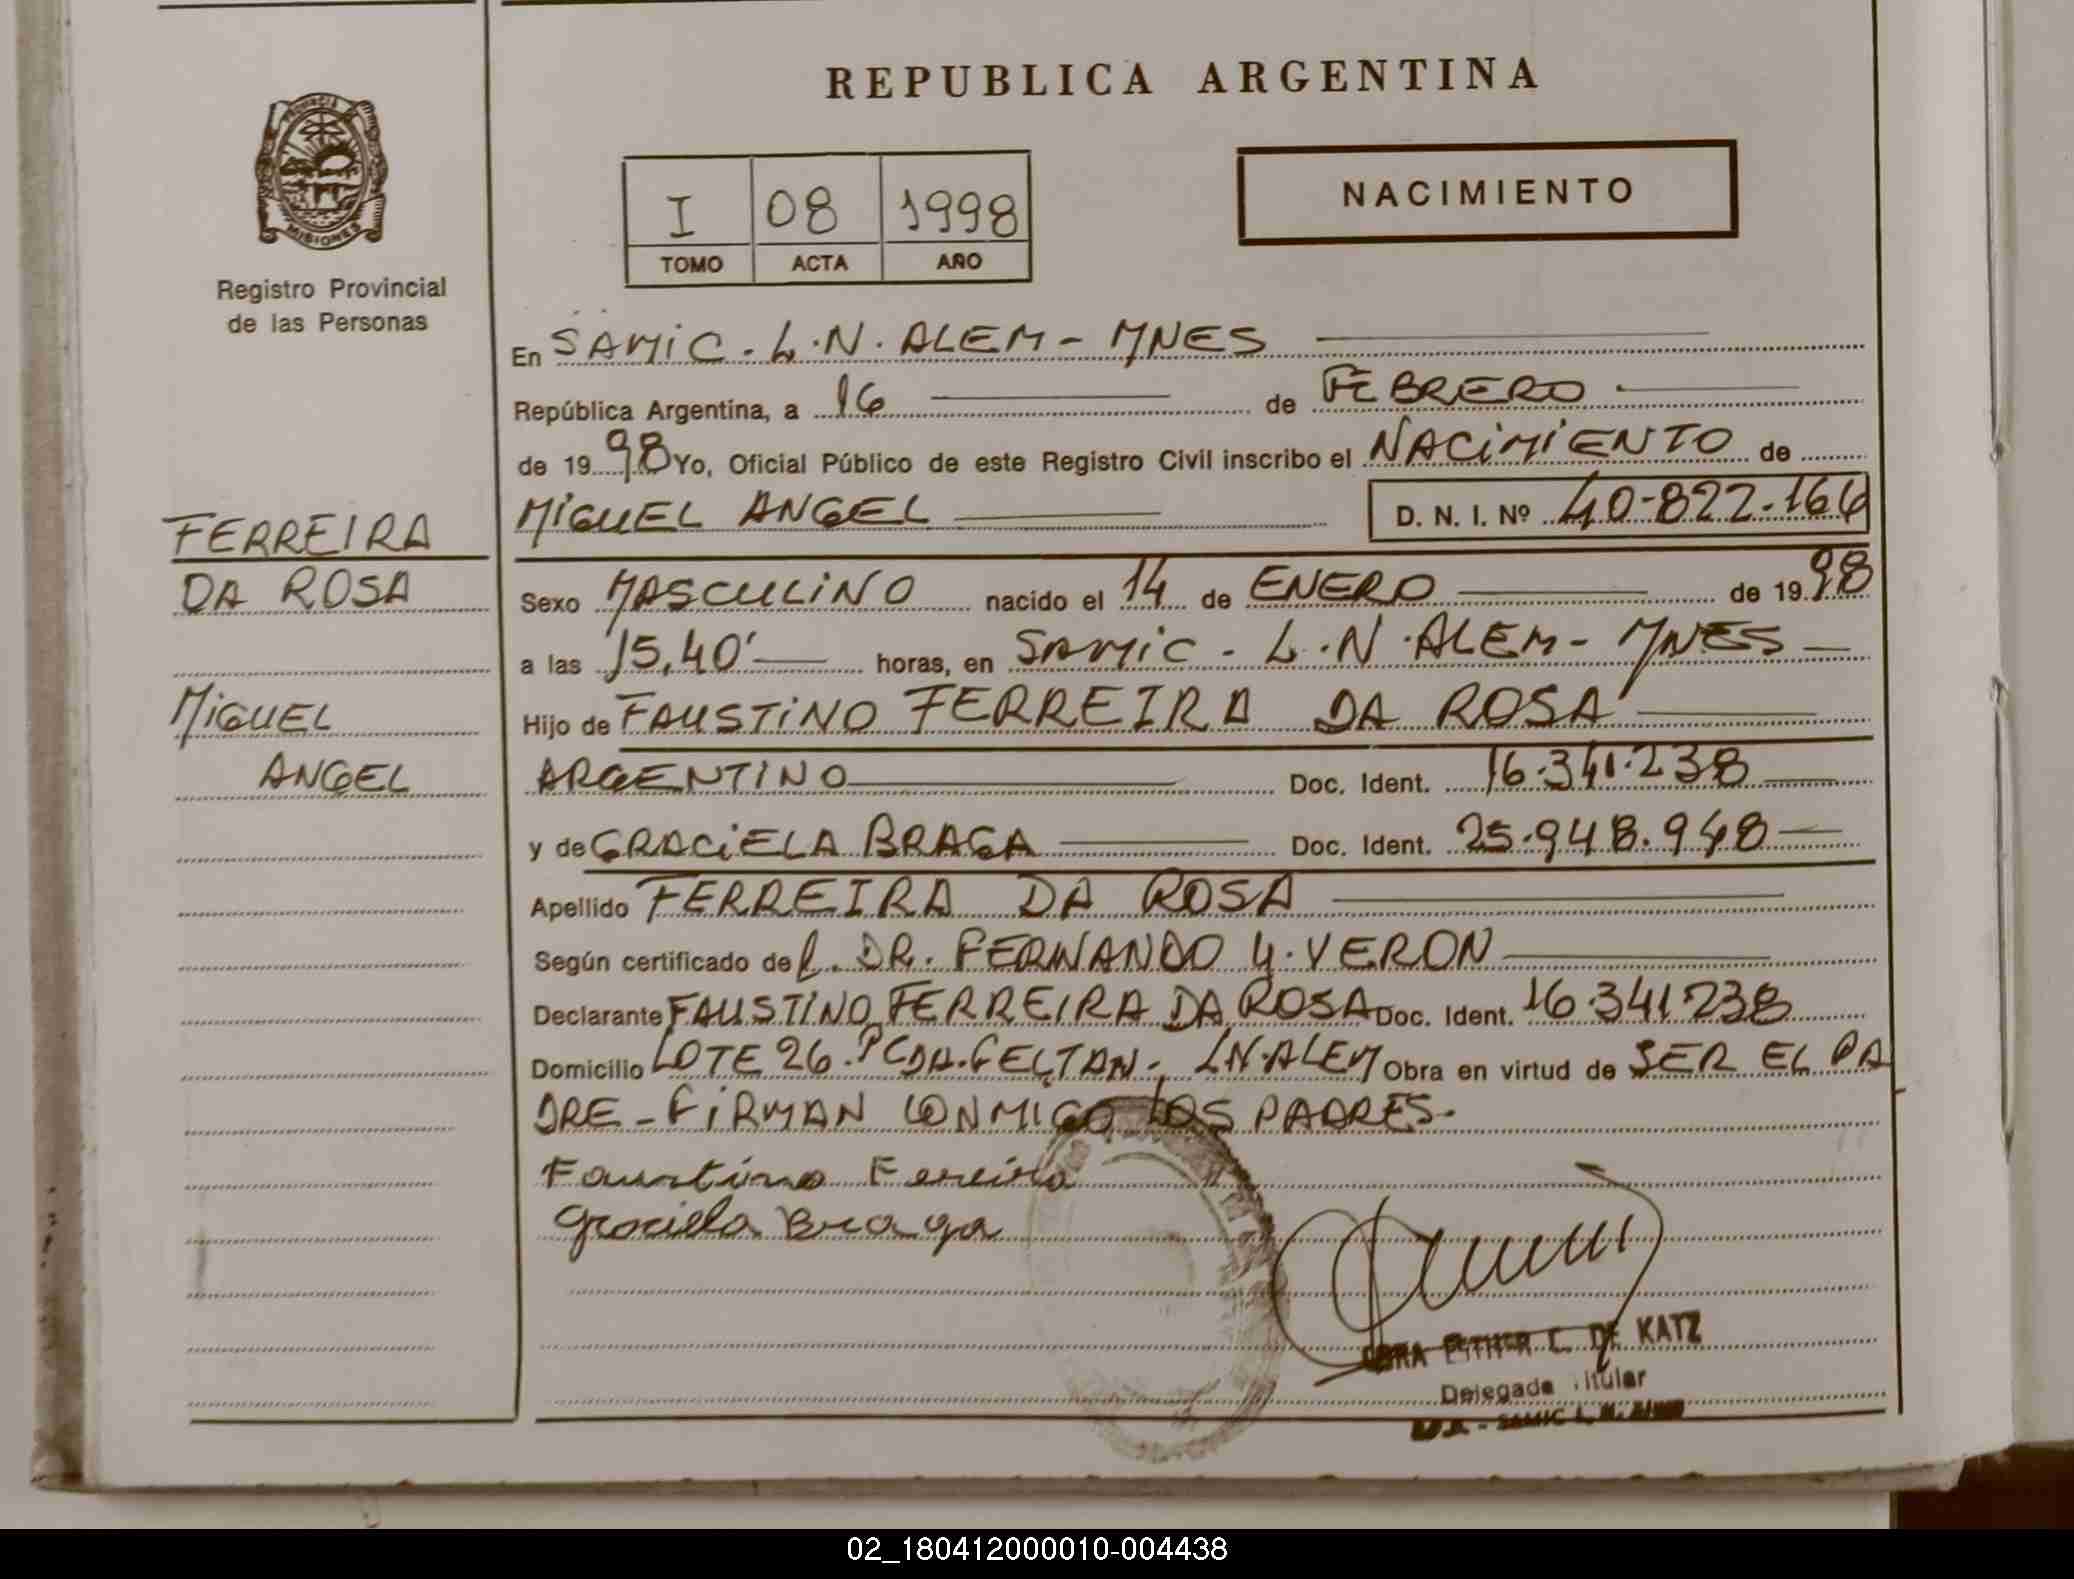 REPUBLICA ARGENTINA
PROVINCIA
MISIONES
Registro Provincial
de las Personas
I 08 1998
TOMO ACTA AÑO
NACIMIENTO
En SAMIC. L.N. ALEM - MNES
República Argentina, a 16 de FEBRERO
de 1998 Yo, Oficial Público de este Registro Civil inscribo el NACIMIENTO de
MIGUEL ANGEL D. N. I. Nº 40-822-166
FERREIRA
DA ROSA
MIGUEL
ANGEL
Sexo MASCULINO nacido el 14 de ENERO de 1998
a las 15,40' horas, en SAMIC - L.N. ALEM - MNES
Hijo de FAUSTINO FERREIRA DA ROSA
ARGENTINO Doc. Ident. 16.341.238
y de GRACIELA BRAGA Doc. Ident. 25.948.948
Apellido FERREIRA DA ROSA
Según certificado del. DR. FERNANDO Y. VERON
Declarante FAUSTINO FERREIRA DA ROSA Doc. Ident. 16.341.238
Domicilio LOTE 26. PCDA. L.N. ALEM Obra en virtud de SER EL PA
DRE - FIRMAN CONMIGO LOS PADRES.
Faustino Fereira
Graciela Braga
ESTHER C. DE KATZ
Delegada Titular
SAMIC L. N. Alem
02_180412000010-004438